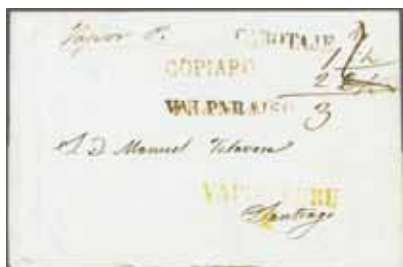 Vapor P. CABOTAJE
COPIAPO 1
2
VALPARAISO 3
A D. Manuel Talavera
VAPOR PERU
Santiago